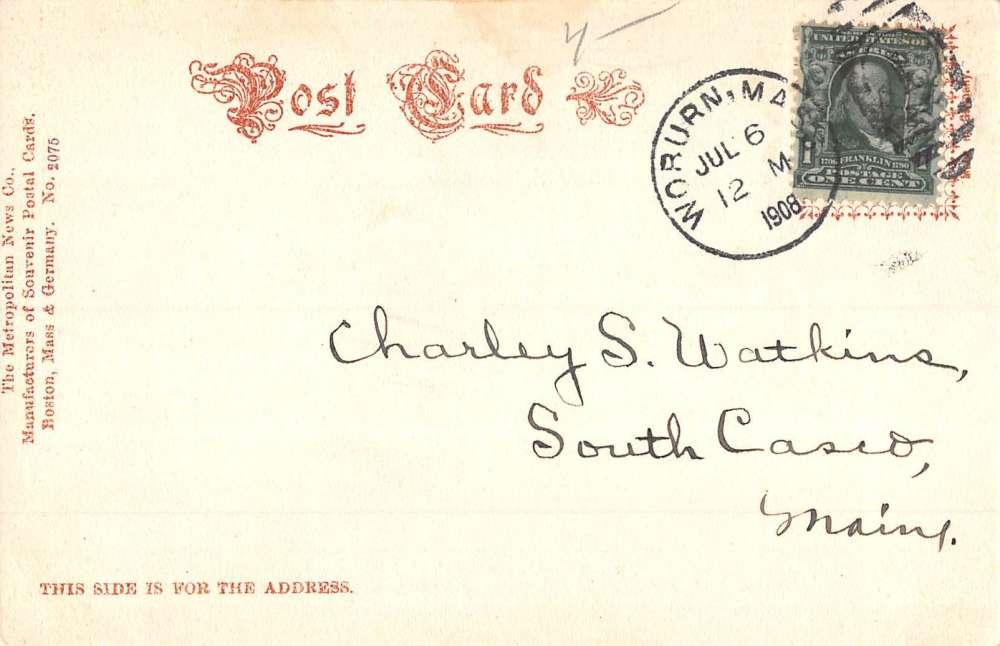 Post Card
4—
WOBURN, MA
JUL 6
12 M
1908
UNITED STATES OF
AMERICA
1
1706 FRANKLIN 1790
POSTAGE
ONE CENT
The Metropolitan News Co.,
Manufacturers of Souvenir Postal Cards.
Boston, Mass & Germany. No. 2075
Charley S. Watkins,
South Casco,
Maine.
THIS SIDE IS FOR THE ADDRESS.